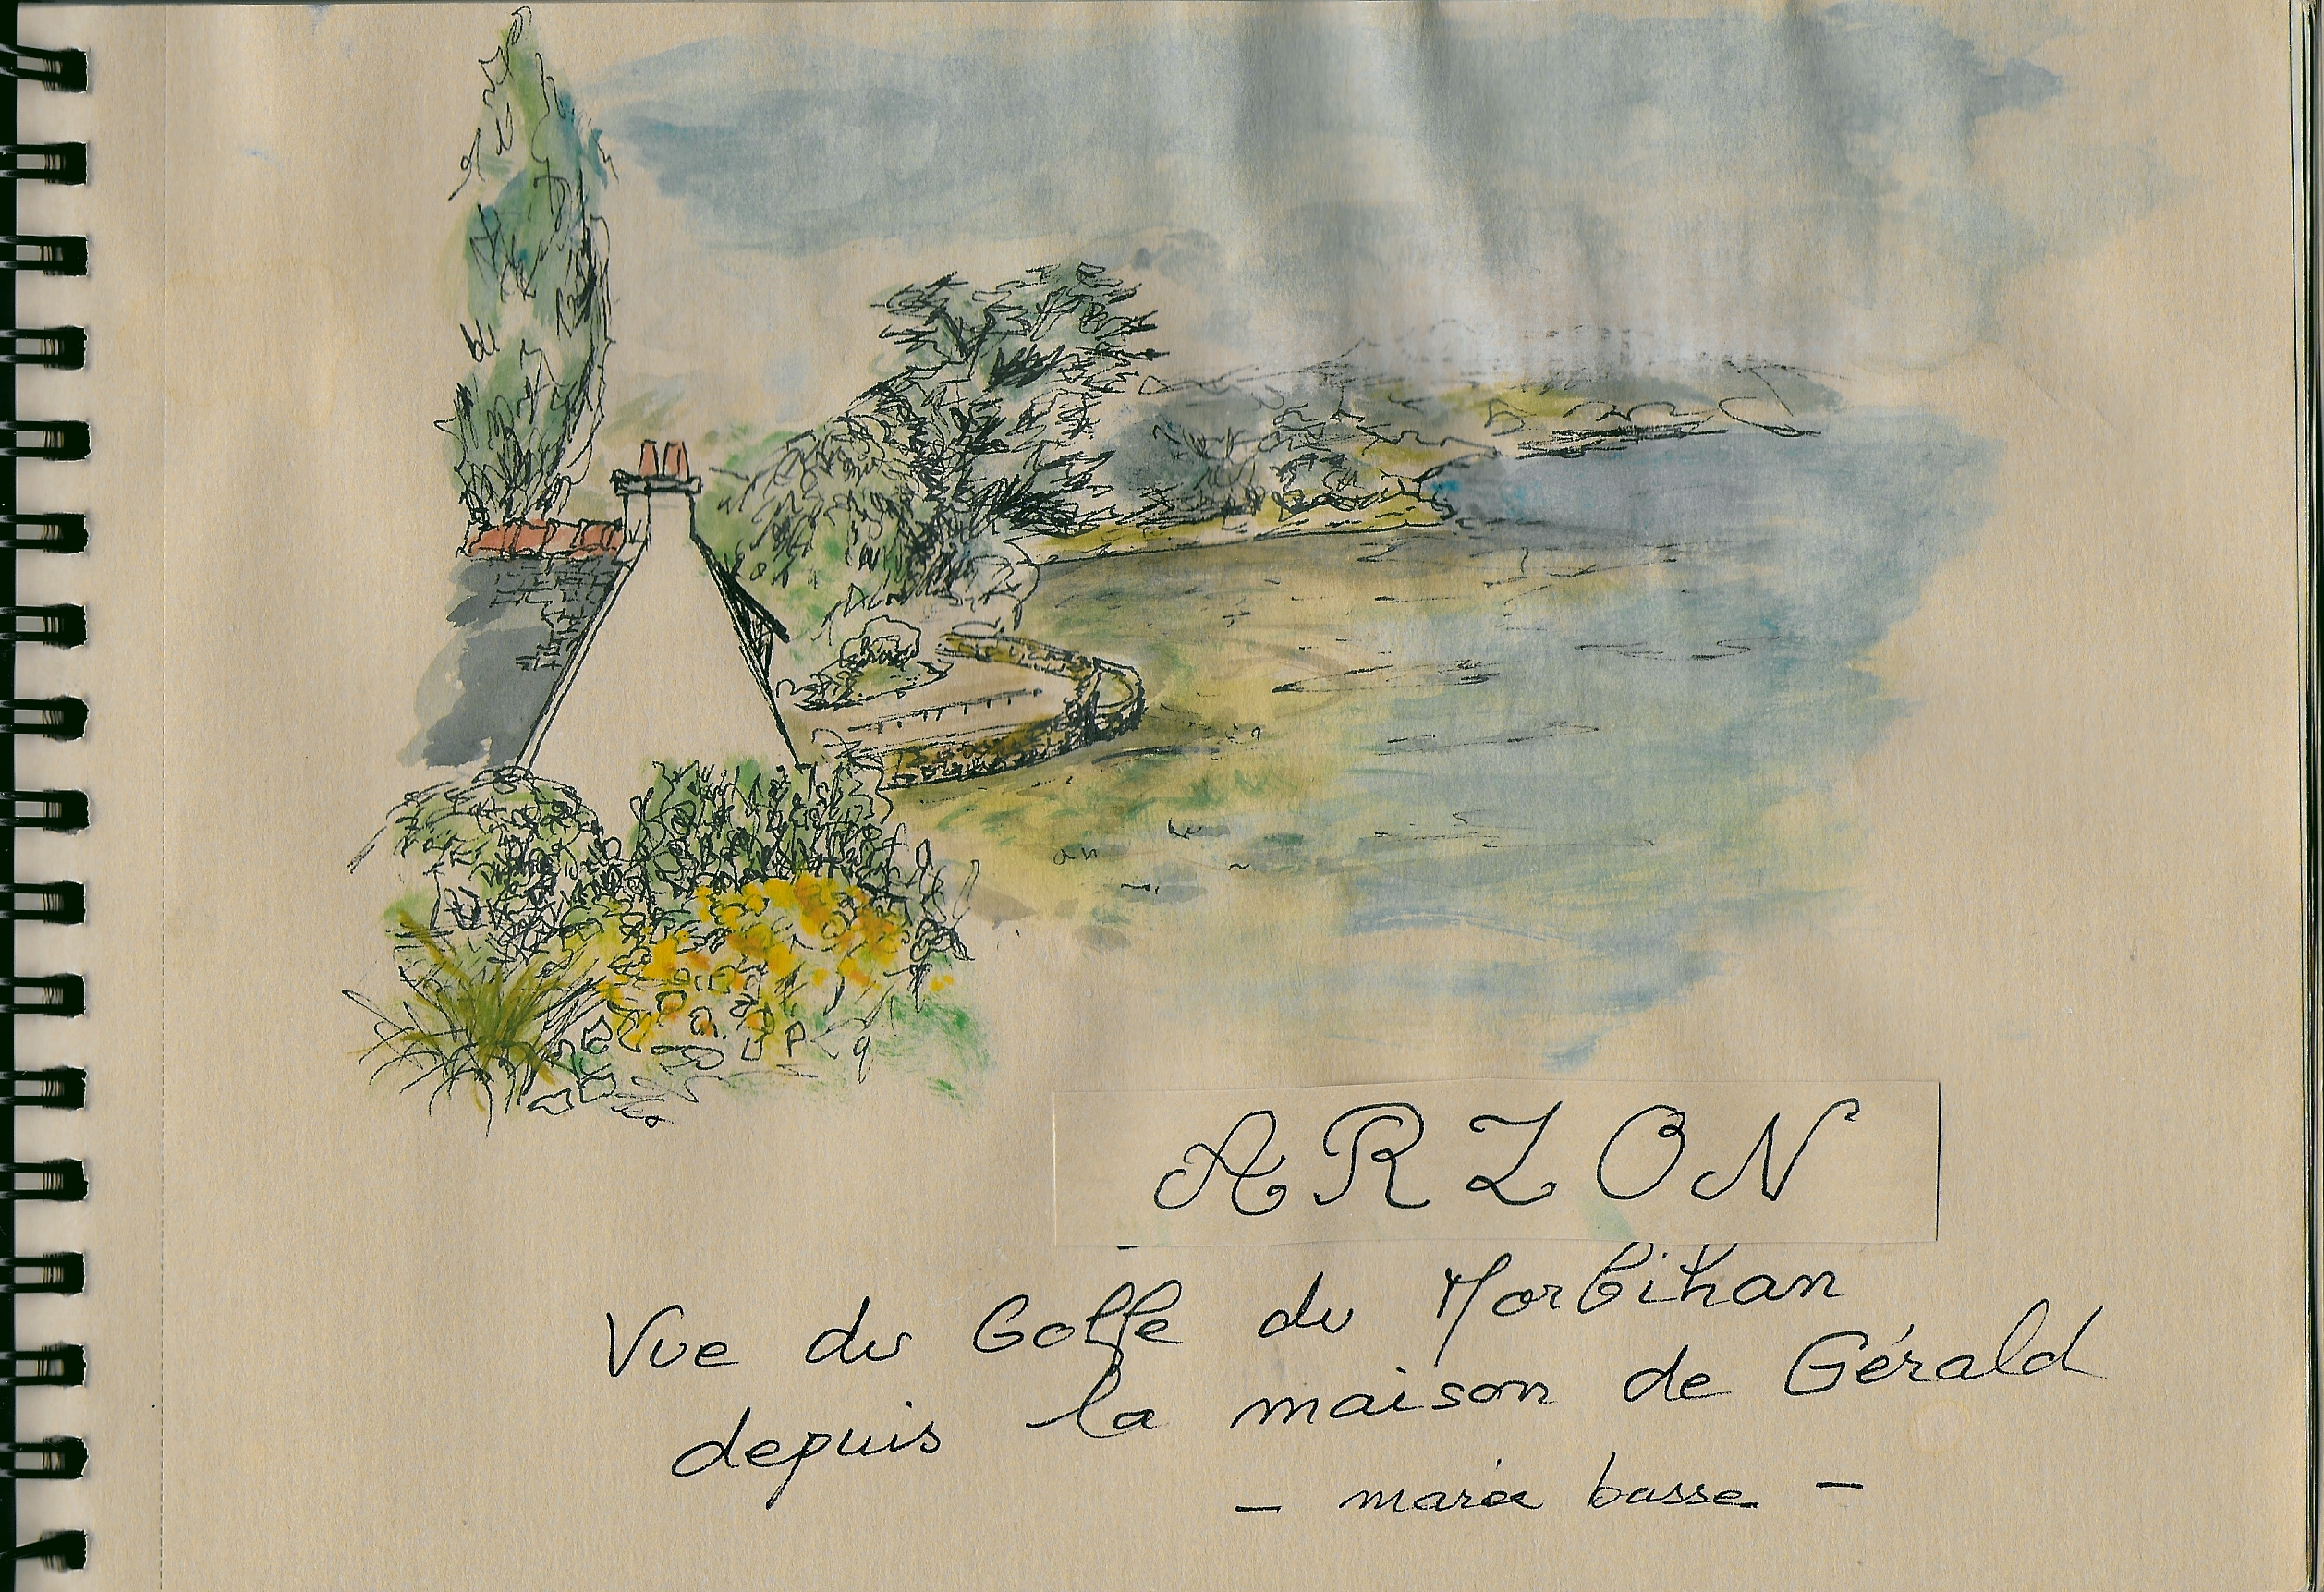 ARZON
Vue du Golfe du Morbihan
depuis la maison de Gérald
- marée basse -